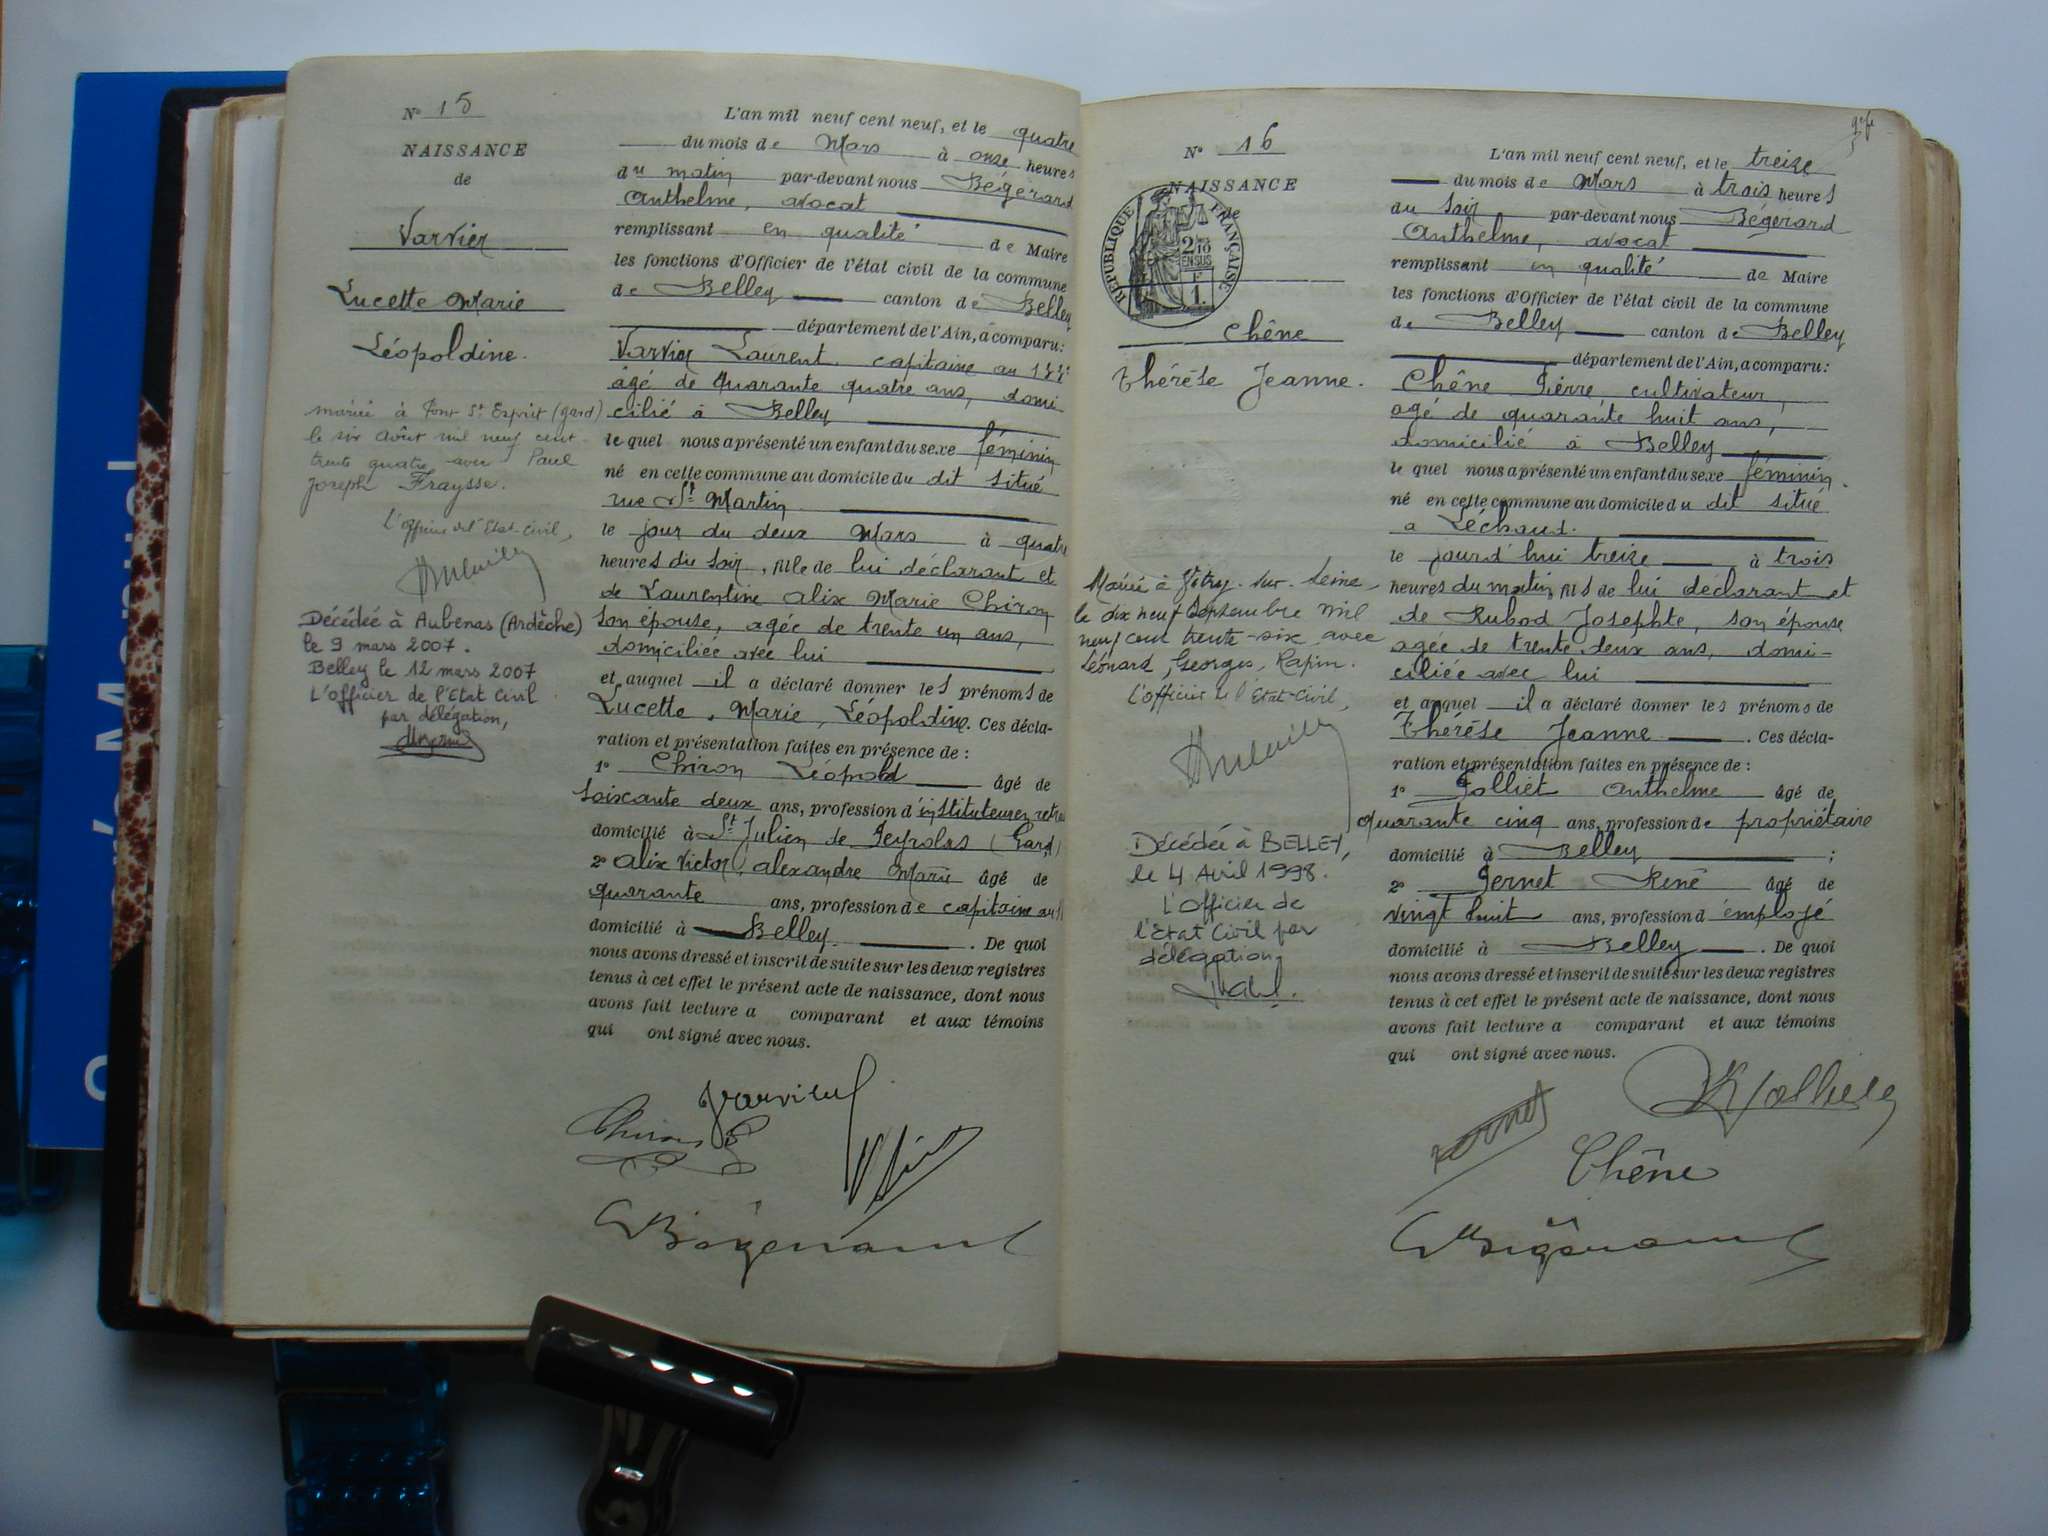 N° 15
NAISSANCE
de
Varvier
Lucette Marie
Léopoldine.
mariée à Pont St Esprit (gard)
le six Août mil neuf cent
trente quatre avec Paul
Joseph Fraysse.
l'officier de l'Etat-civil,
Décédée à Aubenas (Ardèche)
le 9 mars 2007.
Belley le 12 mars 2007
L'officier de l'Etat Civil
par délégation,
L'an mil neuf cent neuf, et le quatre
du mois de Mars à onze heures
du matin par-devant nous Bégerard
Anthelme, avocat
remplissant en qualité de Maire
les fonctions d'Officier de l'état civil de la commune
de Belley canton de Belley
département de l'Ain, a comparu:
Varvier Laurent capitaine au 133e
âgé de quarante quatre ans, domi
cilié à Belley
lequel nous a présenté un enfant du sexe féminin
né en cette commune au domicile du dit situé
rue St Martin
le jour du deux Mars à quatre
heures du soir, fille de lui déclarant et
de Laurentine Alix Marie Chiron
son épouse, agée de trente un ans,
domiciliée avec lui
et auquel il a déclaré donner les prénoms de
Lucette, Marie, Léopoldine. Ces décla-
ration et présentation faites en présence de :
1° Chiron Léopold âgé de
soixante deux ans, profession d'instituteur en retra
domicilié à St Julien de Peyrolas (Gard)
2° Alix Victor, Alexandre Marie âgé de
quarante ans, profession de capitaine au
domicilié à Belley. De quoi
nous avons dressé et inscrit de suite sur les deux registres
tenus à cet effet le présent acte de naissance, dont nous
avons fait lecture a comparant et aux témoins
qui ont signé avec nous.
Varvier
Chiron
Bégerard
N° 16
NAISSANCE
de
RÉPUBLIQUE FRANÇAISE
2/10 EN SUS
F 1.
Chêne
Thérèse Jeanne.
Mariée à Vitry-sur-Seine
le dix neuf Septembre mil
neuf cent trente-six avec
Léonard, Georges, Rapin.
L'officier de l'Etat-Civil,
Décédée à BELLEY,
le 4 Avril 1998.
L'Officier de
l'Etat Civil par
délégation,
L'an mil neuf cent neuf, et le treize
du mois de Mars à trois heures
du soir par-devant nous Bégerard
Anthelme, avocat
remplissant en qualité de Maire
les fonctions d'Officier de l'état civil de la commune
de Belley canton de Belley
département de l'Ain, a comparu:
Chêne Pierre, cultivateur,
agé de quarante huit ans,
domicilié à Belley
lequel nous a présenté un enfant du sexe féminin.
né en cette commune au domicile du dit situé
a Léchaud.
le jourd'hui treize à trois
heures du matin, fils de lui déclarant et
de Rubod Josephte, son épouse
agée de trente deux ans, domi-
ciliée avec lui
et auquel il a déclaré donner les prénoms de
Thérèse Jeanne. Ces décla-
ration et présentation faites en présence de :
1° Jolliet Anthelme âgé de
quarante cinq ans, profession de propriétaire
domicilié à Belley ;
2° Pernet René âgé de
vingt huit ans, profession d'employé
domicilié à Belley. De quoi
nous avons dressé et inscrit de suite sur les deux registres
tenus à cet effet le présent acte de naissance, dont nous
avons fait lecture a comparant et aux témoins
qui ont signé avec nous.
Pernet
Chêne
Bégerard